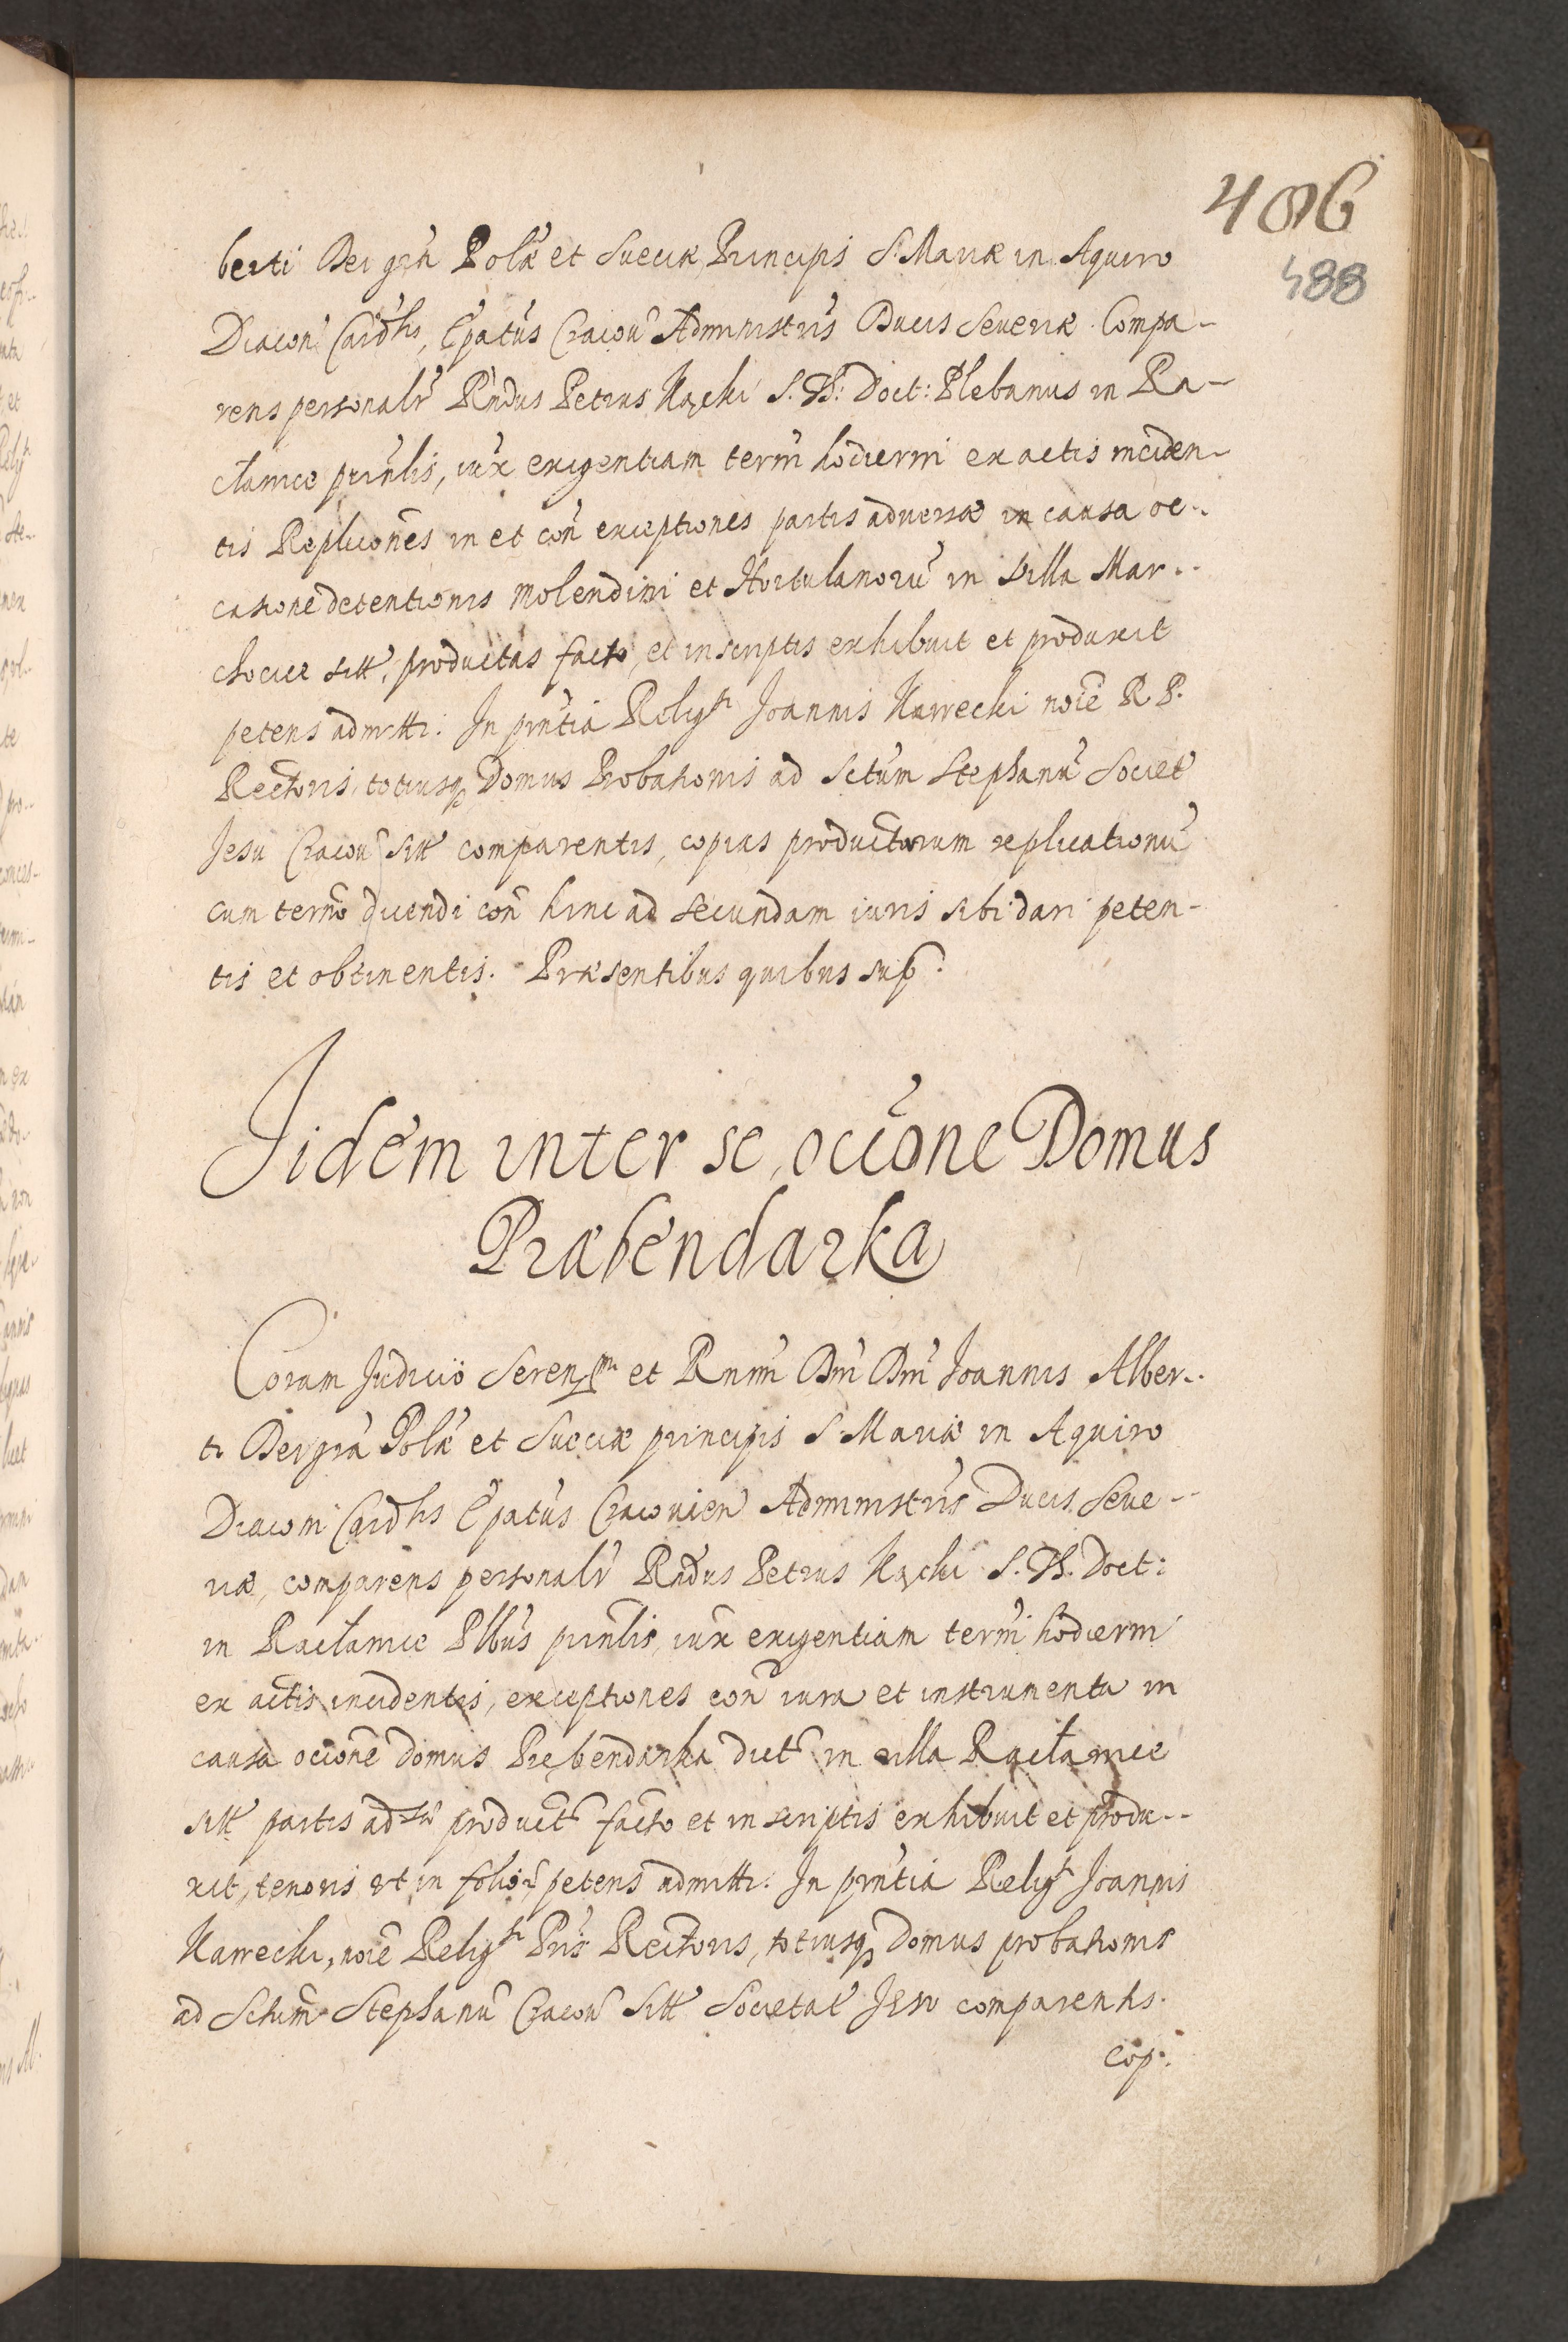 406
488
berti Dei grã Polæ et Sueciæ Principis S. Mariæ in Aquiro
Diacon Cardlis, Epatus Cracou Administris Ducis Seueriæ. Compa-
rens personalr Rndus Petrus Kącki S. Th: Doct: Plebanus in Ra-
cławice prinlis, iux exigentiam termi hodierni ex actis inciden-
tis Replicones in et con exceptiones partis aduersæ in causa oc-
casione detentionis Molendini et Hortulanoru in Villa Mar-
chocice sitt, productas facto, et inscriptis exhibuit et produxit
petens admitti. In pntia Religsi Joannis Kawecki noie R. P.
Rectoris, totiusq Domus Probationis ad Sctum Stephanu Societ
Jesu Cracou sitt comparentis, copias productarum replicationu
cum termo dicendi con hinc ad secundam iuris sibi dari peten-
tis et obtinentis. Præsentibus quibus sup.
Iidem inter se, occione Domus
Præbendarka
Coram Judicio Serenssmi et Rnmi Dni Dni Joannis Alber-
ti Dei gra Polæ et Sueciæ principis S. Mariæ in Aquiro
Diaconi Cardlis Epatus Cracouien Administris Ducis Seue-
riæ, comparens personalr Rndus Petrus Kącki S. Th. Doct:
in Racławice Plbus prinlis, iux exigentiam termi hodierni
ex actis incidentis, exceptiones con iura et instrumenta in
causa occione domus Præbendarka dict in villa Racławice
sitt partis aduersæ product facto et in scriptis exhibuit et produ-
xit, tenoris ut in folio, petens admitti. In pntia Religsi Joannis
Kawecki, noie Religsi Pris Rectoris, totiusq domus probationis
ad Sctum Stephanu Cracou Sitt Societat Jesu comparentis.
cop: